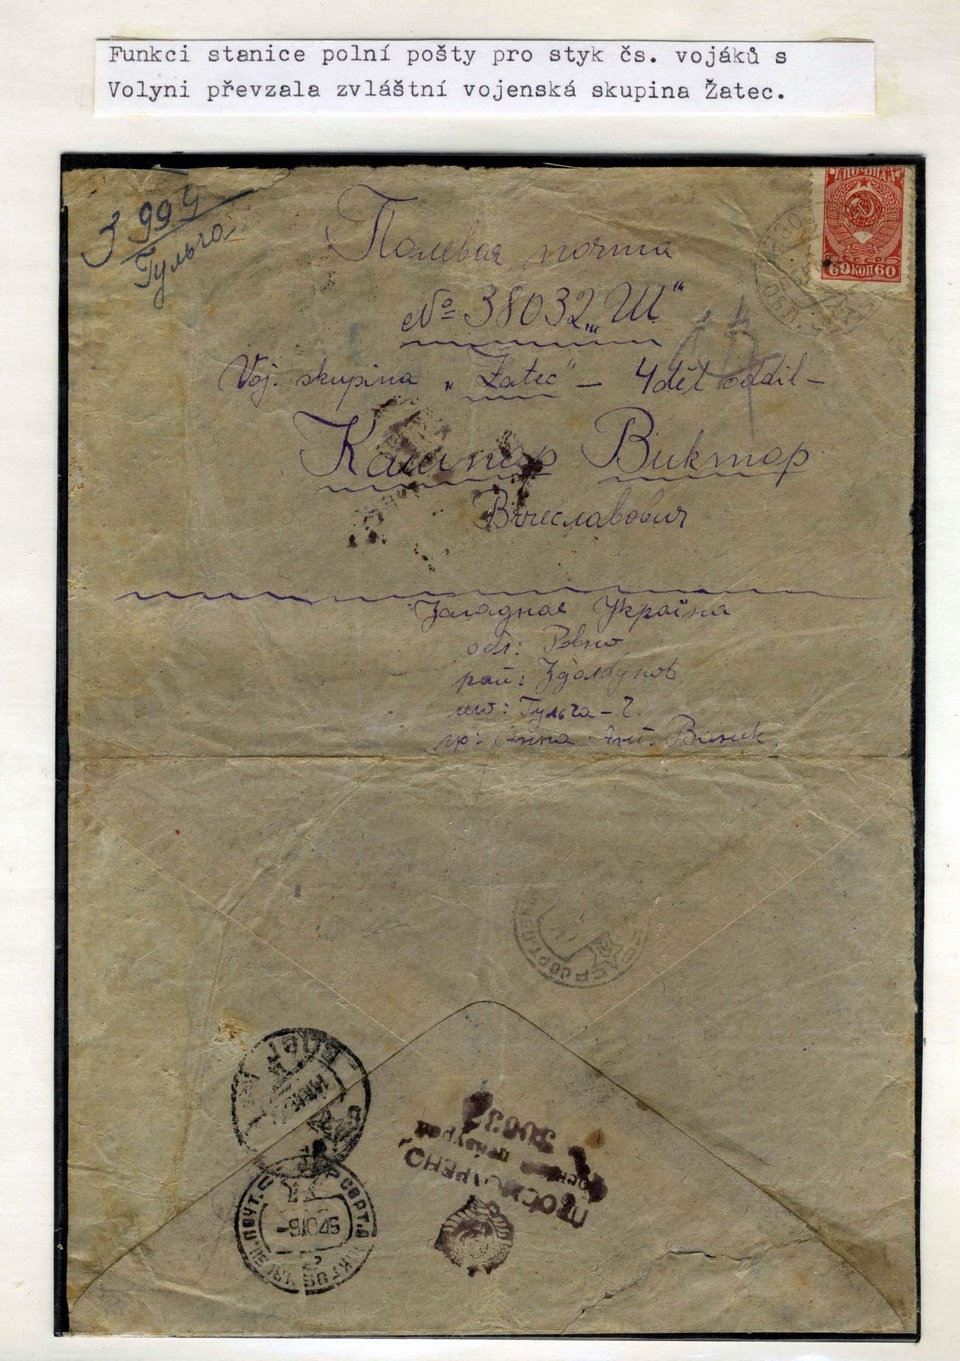 Funkci stanice polní pošty pro styk čs. vojáků s
Volyni převzala zvláštní vojenská skupina Žatec.
З 999
Гульча
ПОЧТА
СССР
60 КОП 60
Полевая почта
№ 38032 „Ш“
Voj. skupina „Žatec“ — 4 děl. oddil —
Кашпар Виктор
Вячеславович
Западная Україна
обл: Ровно
рай: Здолбунов
Гульча - 2.
гр: Анна Ант. Ваник.
ПРОСМОТРЕНО
Военной Цензурой